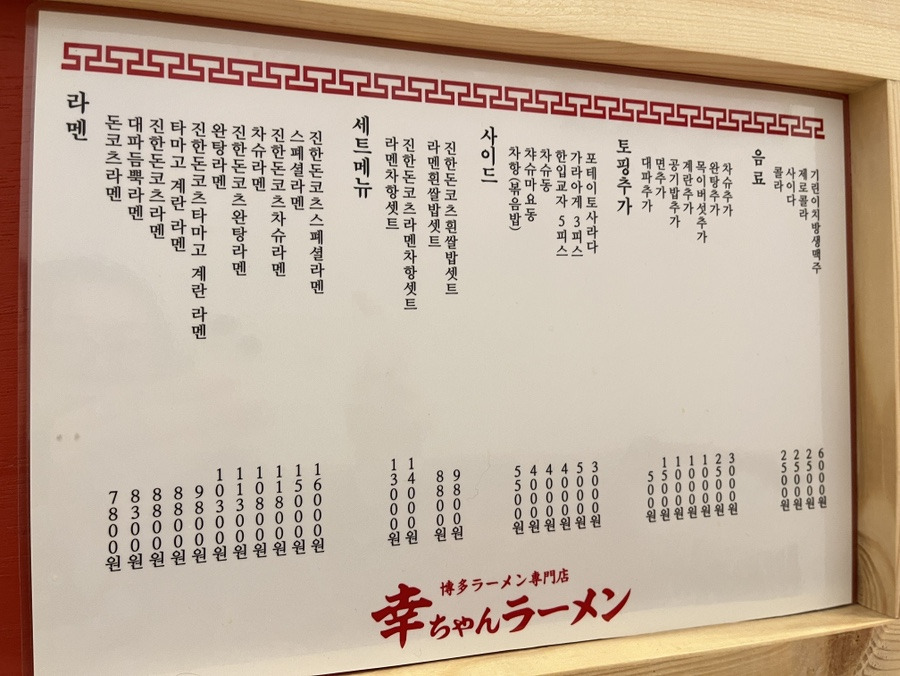 라멘
돈코츠라멘 7800원
대파듬뿍라멘 8300원
진한돈코츠라멘 8800원
타마고 계란 라멘 8800원
진한돈코츠타마고 계란 라멘 9800원
완탕라멘 10300원
진한돈코츠완탕라멘 11300원
차슈라멘 10800원
진한돈코츠차슈라멘 11800원
스페셜라멘 15000원
진한돈코츠스페셜라멘 16000원
세트메뉴
라멘차항셋트 13000원
진한돈코츠라멘차항셋트 14000원
라멘흰쌀밥셋트 8800원
진한돈코츠흰쌀밥셋트 9800원
사이드
차항(볶음밥) 5500원
챠슈마요동 4000원
차슈동 4000원
한입교자 5피스 4000원
가라아게 3피스 5000원
포테이토사라다 3000원
토핑추가
대파추가 500원
면추가 1500원
공기밥추가 1000원
계란추가 1000원
목이버섯추가 1000원
완탕추가 2500원
차슈추가 3000원
음료
콜라 2500원
사이다 2500원
제로콜라 2500원
기린이치방생맥주 6000원
博多ラーメン専門店
幸ちゃんラーメン